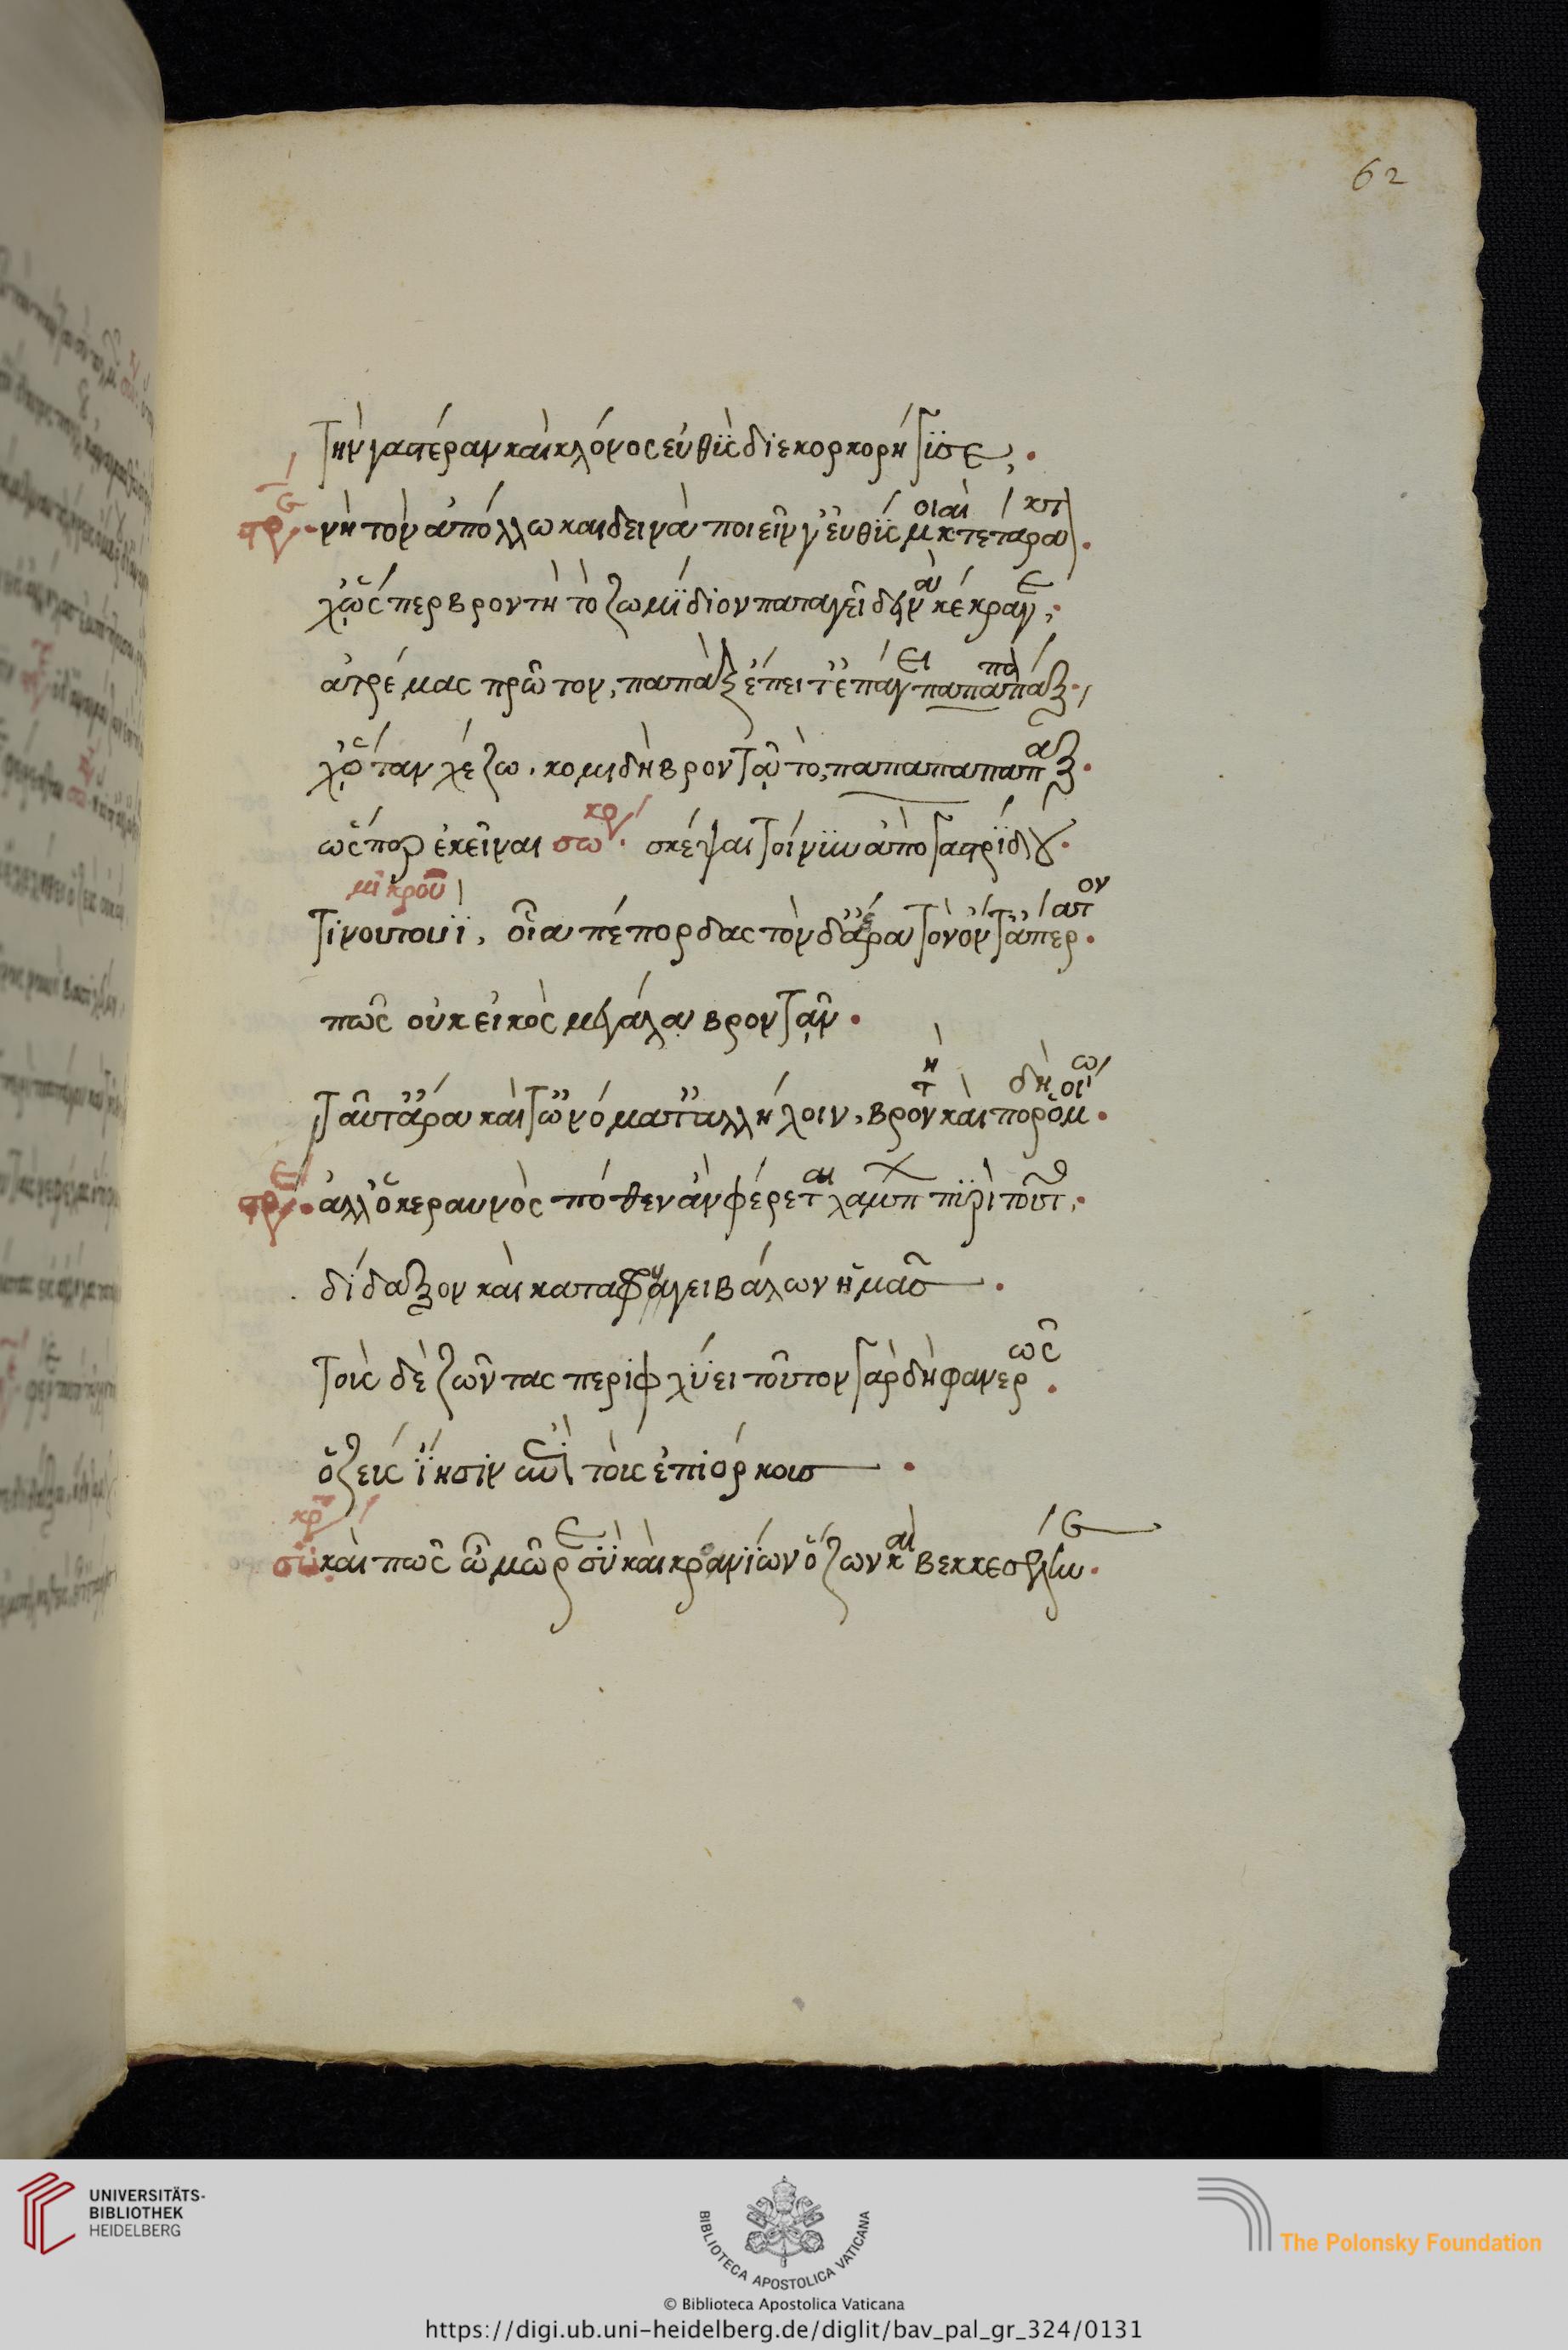 62
τὴν γαστέραν καὶ κλόνος εὐθὺς διεκορκορήγϋσε,
στρ νὴ τὸν ἀπόλλω καὶ δεινὰ ποιεῖν γ' εὐθύς μοι καὶ τετάρακται
χὤσπερ βροντὴ τὸ ζωμίδιον παταγεῖ δεινὰ κέκραγε,
ἀτρέμας πρῶτον, παπὰξ ἔπειτ' ἐπάγει παπαπαπάξ,
χὤταν χέζω. κομιδῆ βροντᾷ τὸ, παπαπαπαπάξ.
ὥσπερ ἐκεῖναι σωκρ. σκέψαι τοίνυν ἀπὸ γαστριδίου
μικροῦ
τυνουτουῒ, οἷα πέπορδας τὸν δ' ἀέρα τόνδ' ὄντ' ἀπέραντον.
πῶς οὐκ εἰκὸς μεγάλα βροντᾷν.
ταῦτ' ἄρα καὶ τὠνόματ' ἀλλήλοιν, βροντὴ καὶ πορδὴ ὁμοίω.
στρε ἀλλ' ὁ κεραυνὸς πόθεν αὖ φέρεται λάμπ πυρὶ τοῦτο,
δίδαξον καὶ καταφρύγει βάλων ἡμᾶσ
τοὺς δὲ ζῶντας περιφλύει τοῦτον γὰρ δὴ φανερῶς
ὁ ζεύς ἵησιν ἐπὶ τοὺς ἐπιόρκουσ
σωκρ καὶ πῶς ὦ μῶρε σὺ καὶ κρονίων ὄζων καὶ βεκκεσέληνε.
UNIVERSITÄTS-
BIBLIOTHEK
HEIDELBERG
BIBLIOTECA APOSTOLICA VATICANA
The Polonsky Foundation
© Biblioteca Apostolica Vaticana
https://digi.ub.uni-heidelberg.de/diglit/bav_pal_gr_324/0131